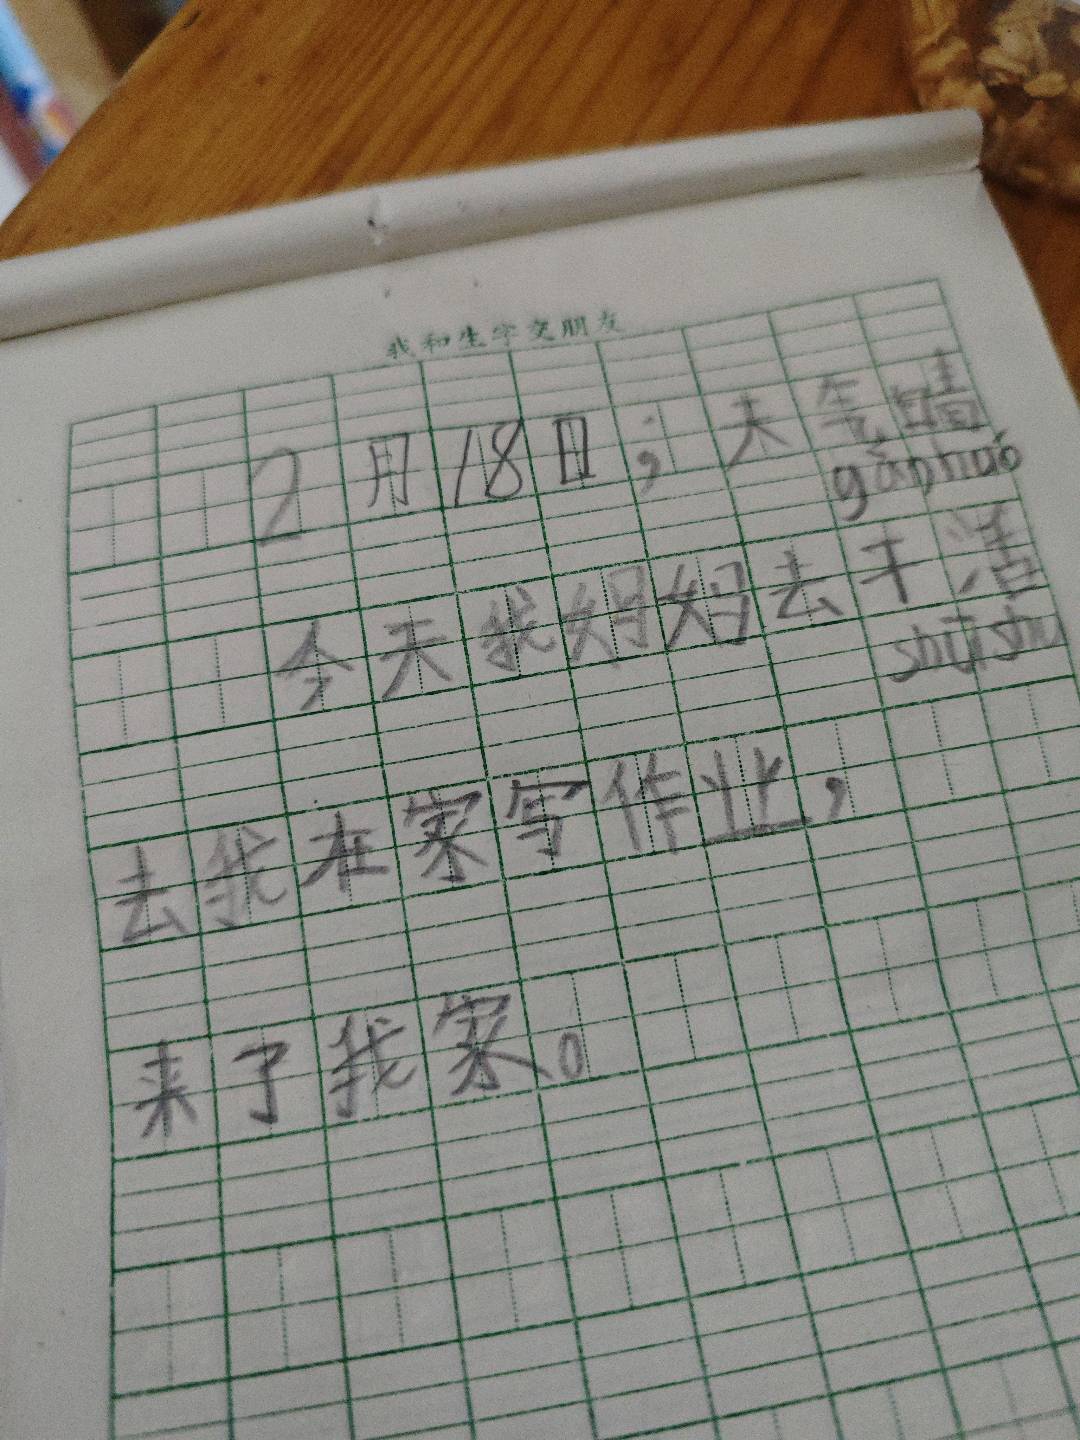 我和生字交朋友
2月18日；天气晴
gànhuó
今天我妈妈去干活
shūshu
去我在家写作业，
来了我家。